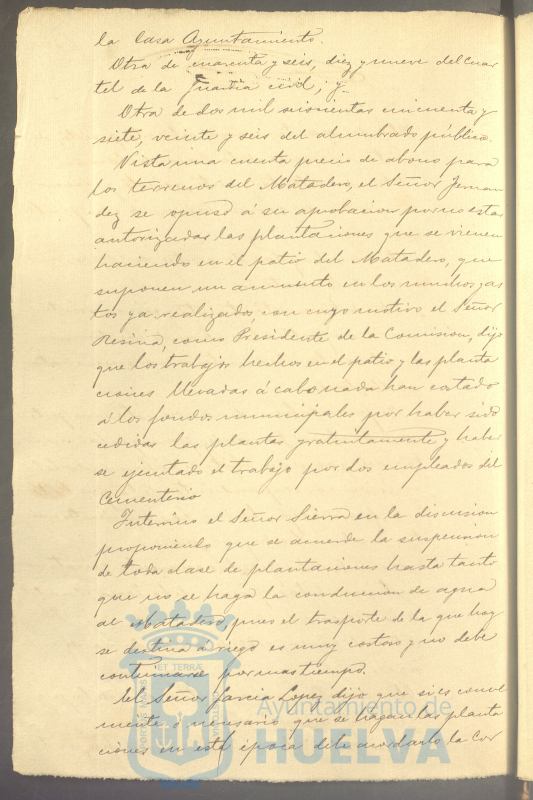 la Casa Ayuntamiento.
Otra de cuarenta y seis, diez y nueve del Cuar
tel de la Guardia civil; y
Otra de dos mil seiscientas cincuenta y
siete, veinte y seis del alumbrado público.
Vista una cuenta precio de abono para
los terrenos del Matadero, el Señor Jernan
dez se opuso á su aprobacion por no estar
autorizadas las plantaciones que se vienen
haciendo en el patio del Matadero, que
suponen un aumento en los muchos gas
tos ya realizados, con cuyo motivo el Señor
Resina, como Presidente de la Comision, dijo
que los trabajos hechos en el patio y las planta
ciones llevadas á cabo nada han costado
á los fondos municipales por haber sido
cedidas las plantas gratuitamente y haber
se ejecutado el trabajo por dos empleados del
Cementerio
Intervino el Señor Sierra en la discusion
proponiendo que se acuerde la suspension
de toda clase de plantaciones hasta tanto
que no se haga la conduccion de agua
al Matadero, pues el trasporte de la que hoy
se destina á riego es muy costoso y no debe
continuarse por mas tiempo.
El Señor Garcia Lopez dijo que si es conve
niente y necesario que se hagan las planta
ciones en esta época debe acordarlo la Cor
PORTUS MARIS ET TERRÆ
Ayuntamiento de
HUELVA